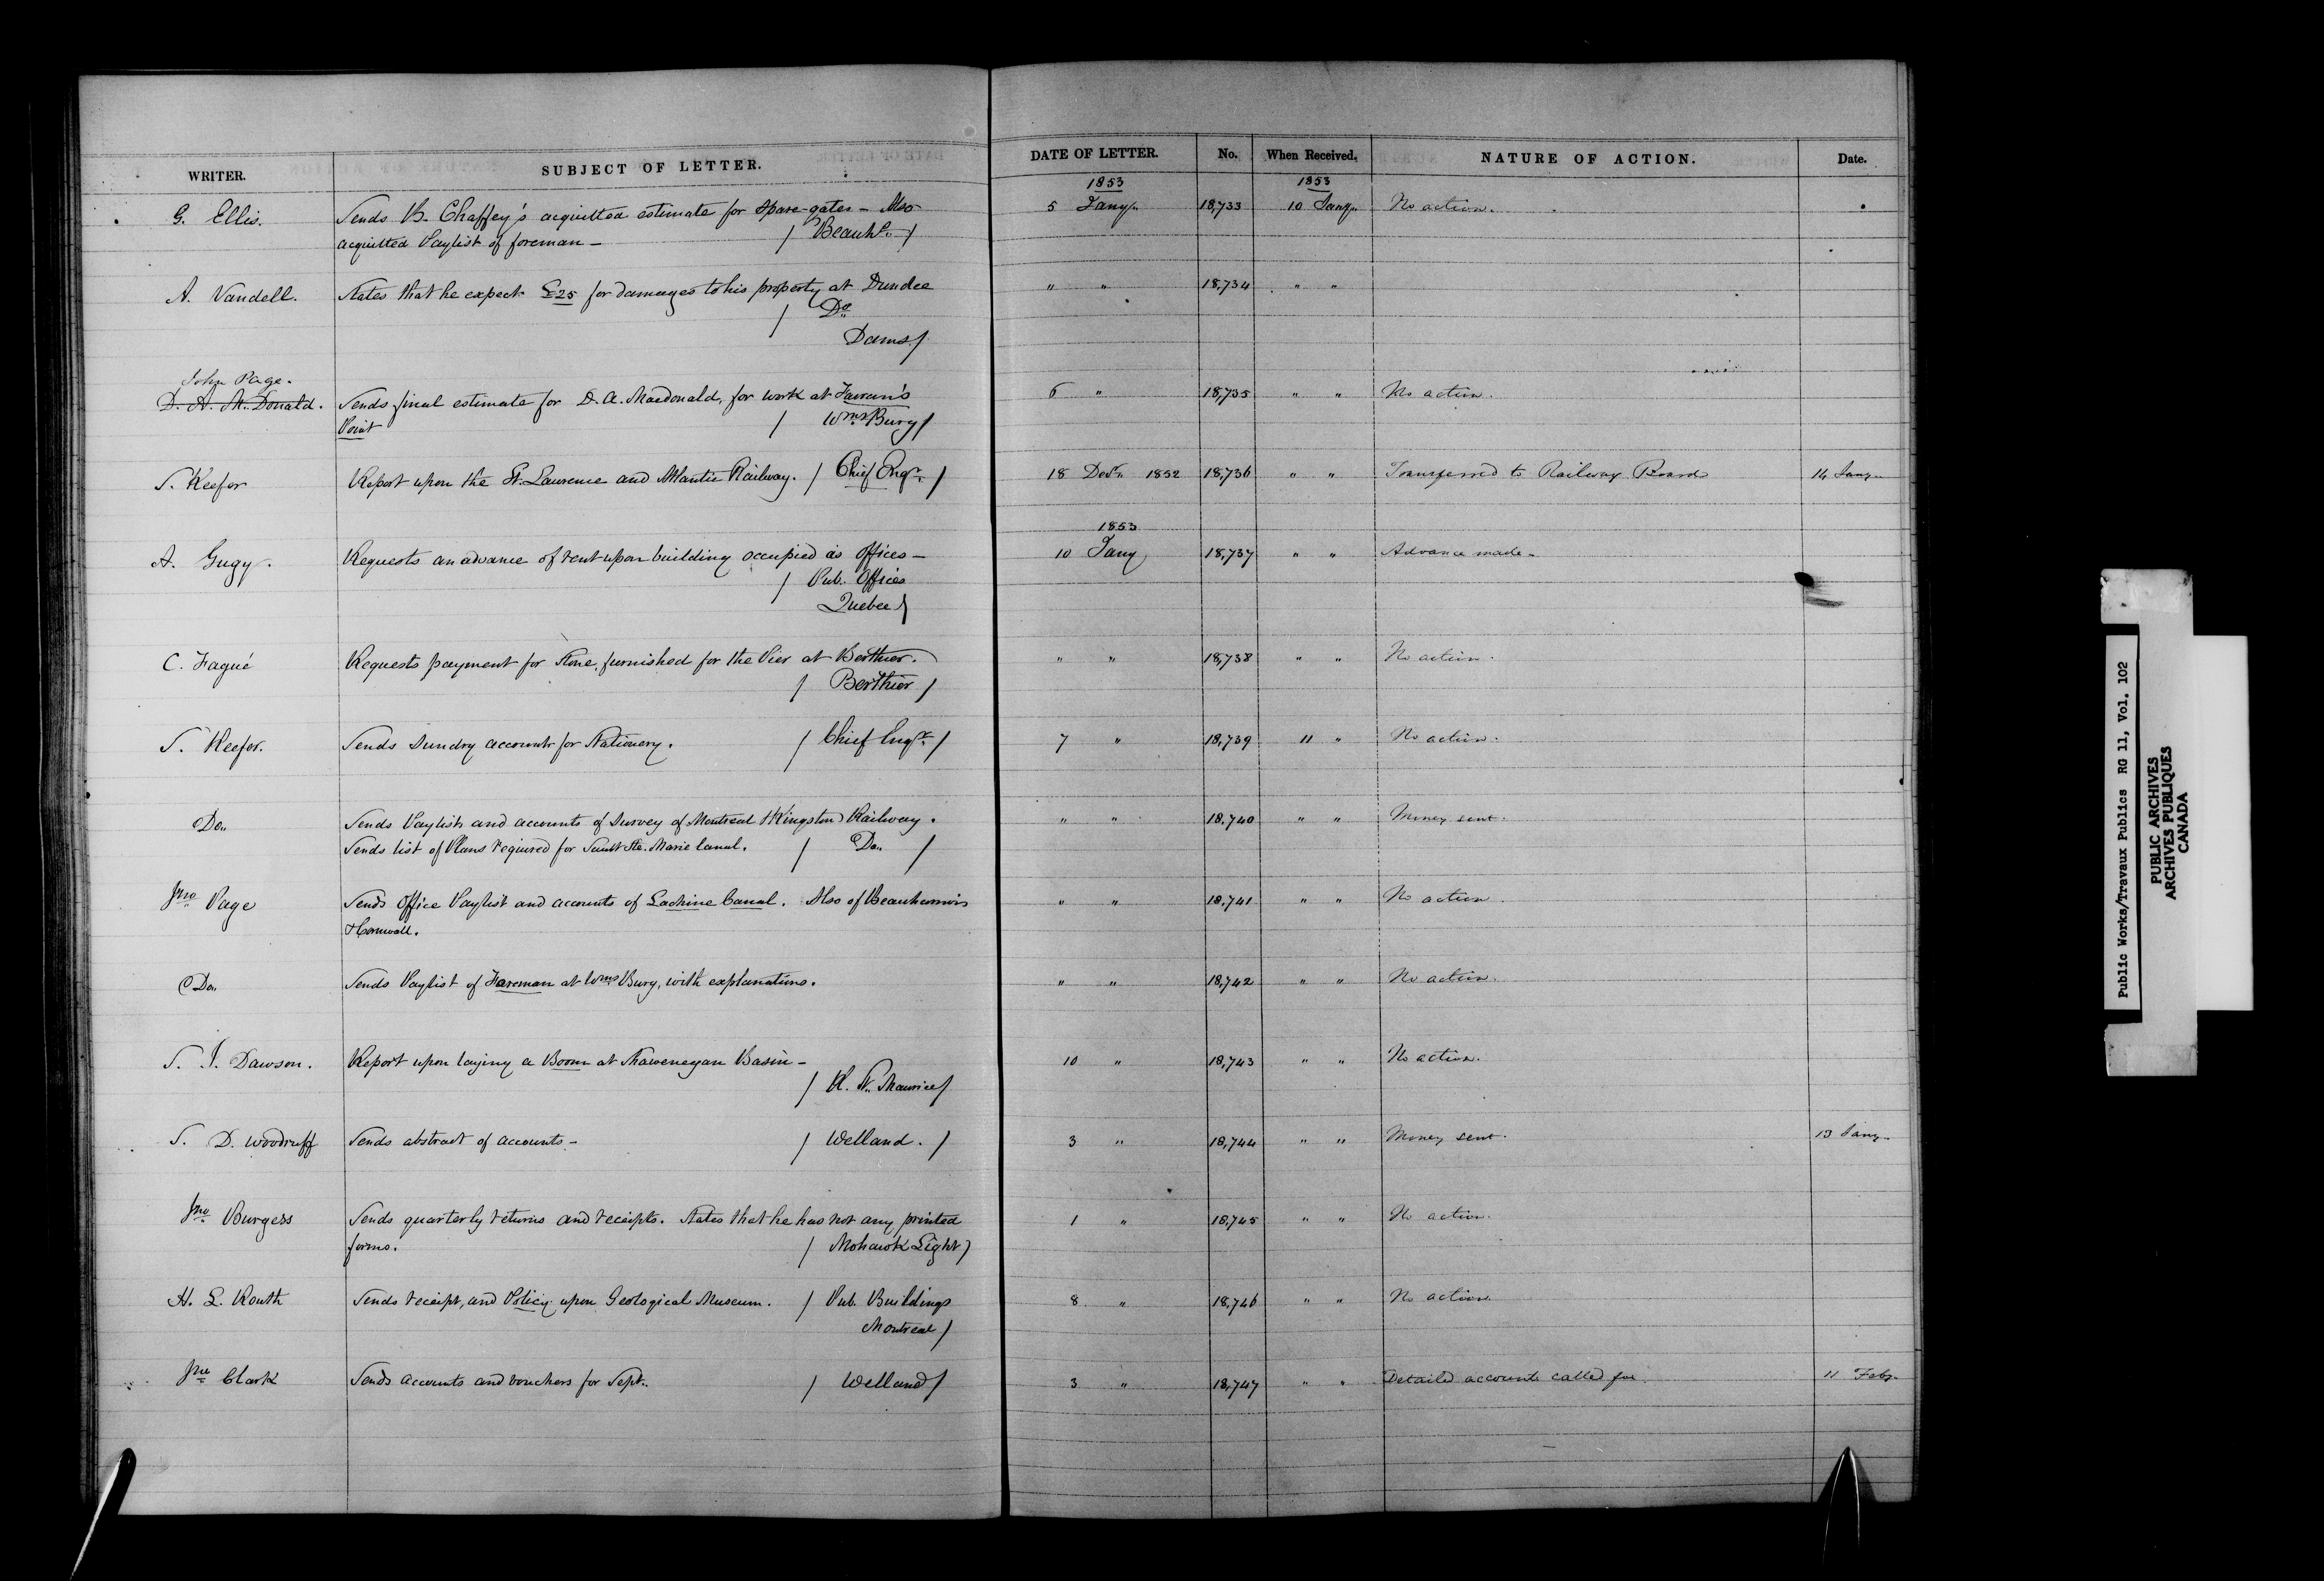 WRITER. SUBJECT OF LETTER. DATE OF LETTER. No. When Received. NATURE OF ACTION. Date.
1853 1853
G. Ellis. Sends B. Chaffey's acquitted estimate for spare-gates – Also 5 Jany. 18,733 10 Jany. No action.
acquitted Paylist of foreman – / Beauhs. /
A. Vandell. States that he expects £25 for damages to his property at Dundee " " 18,734 " "
/ Do
Dams /
John Page.
D. A. McDonald. Sends final estimate for D. A. Macdonald, for work at Farran's 6 " 18,735 " " No action.
Point / Wms Burg /
S. Keefer Report upon the St. Lawrence and Atlantic Railway. / Chief Engr. / 18 Decr. 1852 18,736 " " Transferred to Railway Board 14 Jany.
1853
A. Gugy. Requests an advance of rent upon building occupied as offices – 10 Jany 18,737 " " Advance made –
/ Pub. Offices
Quebec /
C. Fagué Requests payment for Stone, furnished for the Pier at Berthier. " " 18,738 " " No action.
/ Berthier /
S. Keefer. Sends Sundry accounts for Stationery. / Chief Engr. / 7 " 18,739 11 " No action.
Do. Sends Paylists and accounts of Survey of Montreal & Kingston Railway. " " 18,740 " " Money sent.
Sends list of Plans required for Sault Ste. Marie Canal. / Do. /
Jno Page Sends Office Paylist and accounts of Lachine Canal. Also of Beauharnois " " 18,741 " " No action.
& Cornwall.
Do. Sends Paylist of Foreman at Wms Burg, with explanations. " " 18,742 " " No action.
S. J. Dawson. Report upon laying a Boom at Shawenegan Basin – 10 " 18,743 " " No action.
/ R. St. Maurice /
S. D. Woodruff Sends abstract of accounts – / Welland. / 3 " 18,744 " " Money sent. 13 Jany.
Jno Burgess Sends quarterly returns and receipts. States that he has not any printed 1 " 18,745 " " No action.
forms. / Mohawk Light /
H. L. Routh Sends receipt, and Policy upon Geological Museum. / Pub. Buildings 8 " 18,746 " " No action.
Montreal /
Jno Clark Sends accounts and vouchers for Sept. / Welland / 3 " 18,747 " " Detailed accounts called for. 11 Feby.
Public Works/Travaux Publics RG 11, Vol. 102
PUBLIC ARCHIVES
ARCHIVES PUBLIQUES
CANADA